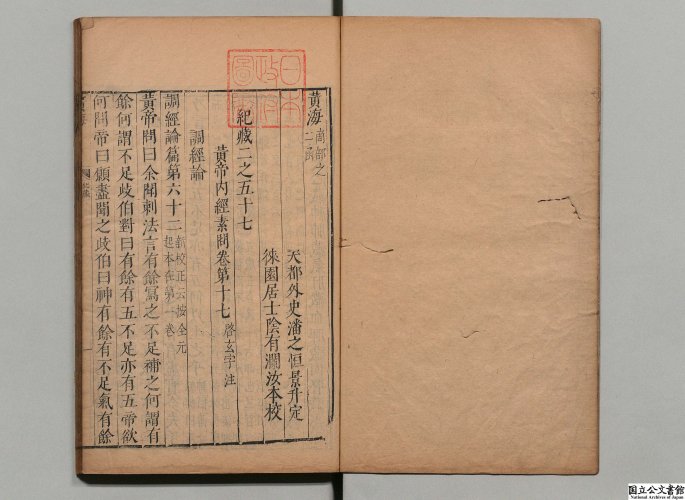 黃海
紀藏二之五十七
天都外史潘之恒景升定
徠園居士陰有瀾汝本校
黃帝內經素問卷第十七 啓玄子注
調經論
調經論篇第六十二 新校正云按全元
起本在第一卷
黃帝問曰余聞刺法言有餘寫之不足補之何謂有
餘何謂不足歧伯對曰有餘有五不足亦有五帝欲
何問帝曰願盡聞之歧伯曰神有餘有不足氣有餘
日本
政府
圖書
国立公文書館
National Archives of Japan